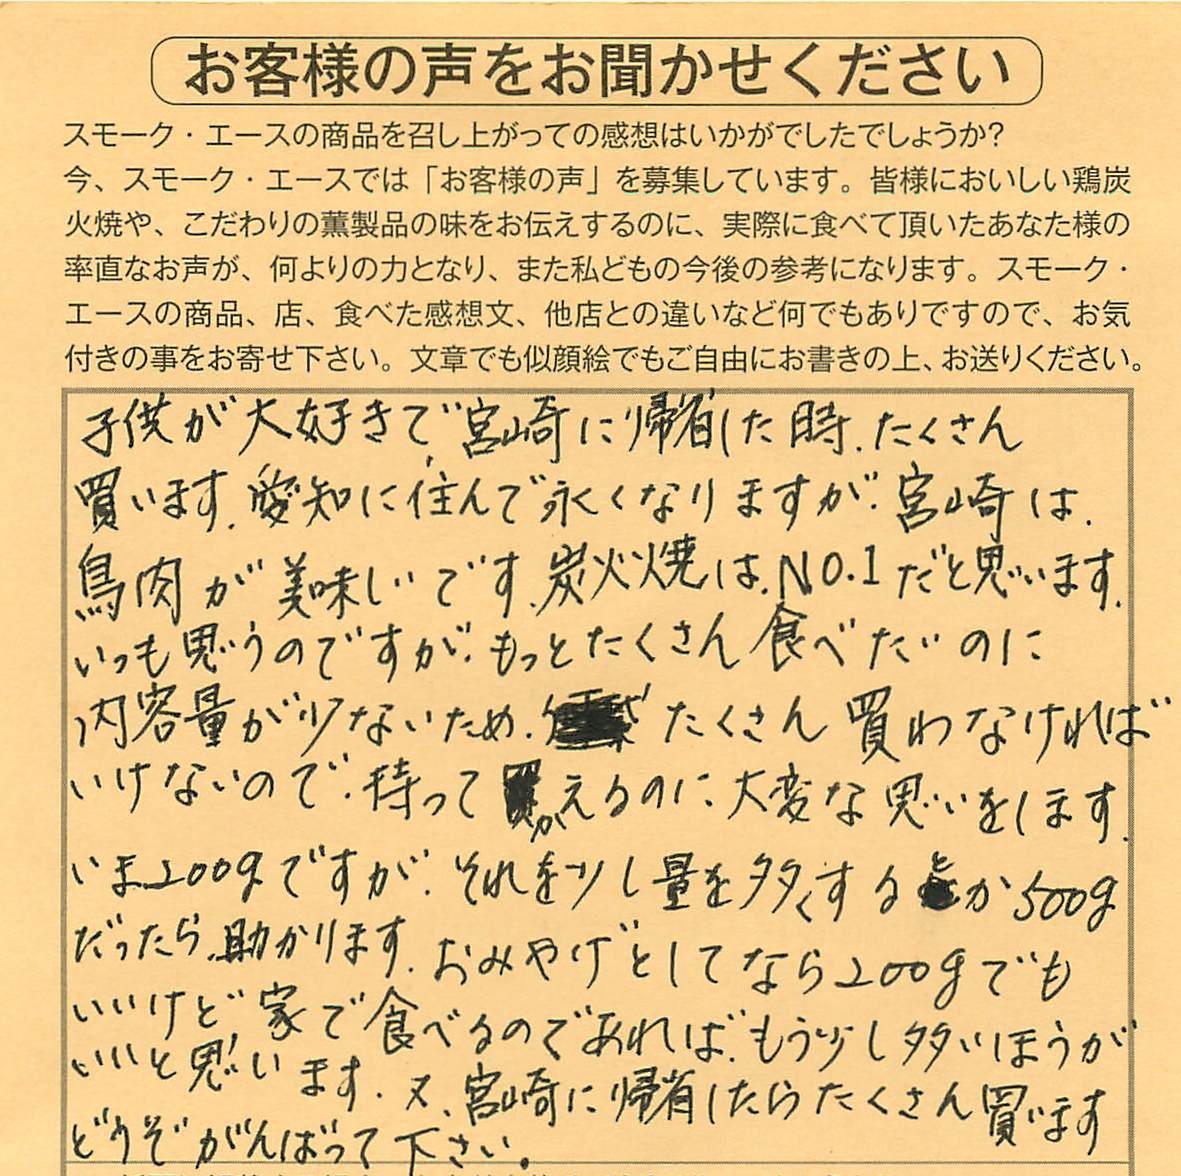 お客様の声をお聞かせください
スモーク・エースの商品を召し上がっての感想はいかがでしたでしょうか?
今、スモーク・エースでは「お客様の声」を募集しています。皆様においしい鶏炭
火焼や、こだわりの薫製品の味をお伝えするのに、実際に食べて頂いたあなた様の
率直なお声が、何よりの力となり、また私どもの今後の参考になります。スモーク・
エースの商品、店、食べた感想文、他店との違いなど何でもありですので、お気
付きの事をお寄せ下さい。文章でも似顔絵でもご自由にお書きの上、お送りください。
子供が大好きで、宮崎に帰省した時、たくさん
買います。愛知に住んで永くなりますが、宮崎は、
鳥肉が美味しいです。炭火焼は、NO.1だと思います。
いつも思うのですが、もっとたくさん食べたいのに
内容量が少ないため、たくさん買わなければ
いけないので、持ってかえるのに、大変な思いをします。
いま200gですが、それを少し量を多くするとか500g
だったら、助かります。おみやげとしてなら200gでも
いいけど、家で食べるのであれば、もう少し多いほうが
いいと思います。又、宮崎に帰省したらたくさん買います
どうぞがんばって下さい。